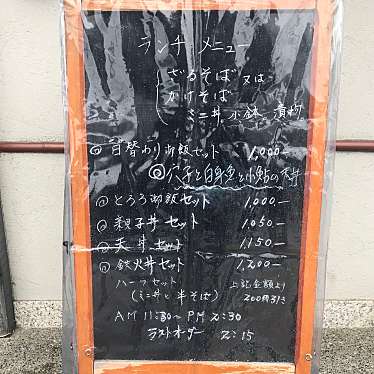 ランチ メニュー
ざるそば 又は
かけそば
ミニ丼 小鉢 漬物
◎日替わり御飯セット 1,000-
◎穴子と白身魚と小鮎の天丼
◎とろろ御飯セット 1,000-
◎親子丼セット 1,050-
◎天丼セット 1,150-
◎鉄火丼セット 1,200-
ハーフセット 上記金額より
(ミニ丼と半そば) 200円引き
AM 11:30~PM 2:30
ラストオーダー 2:15